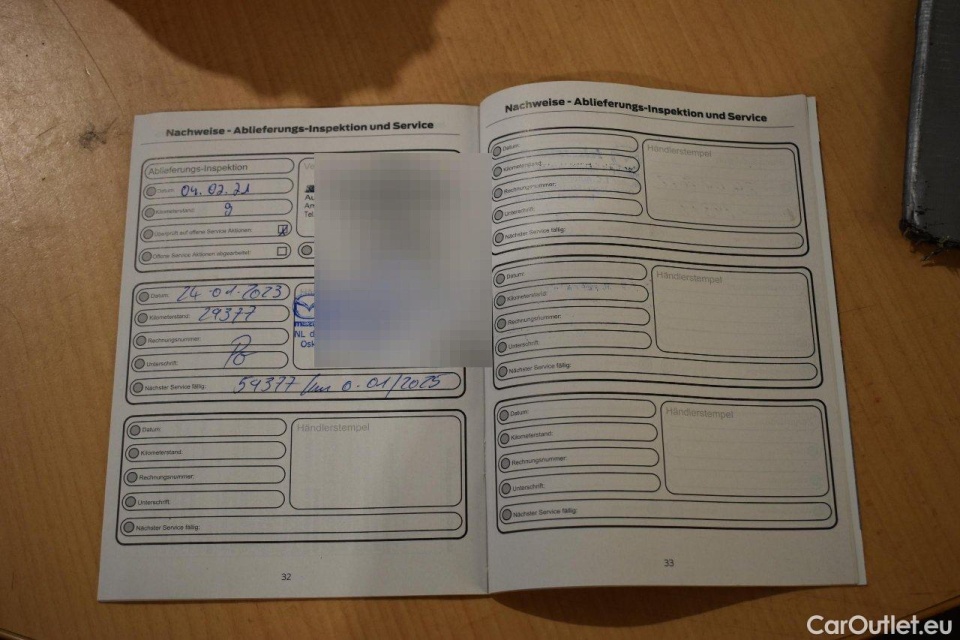 Nachweise - Ablieferungs-Inspektion und Service
Ablieferungs-Inspektion
Datum: 04.02.21
Kilometerstand: 9
Überprüft auf offene Service Aktionen:
Offene Service Aktionen abgearbeitet:
Au
Tel.
Datum: 24.01.2023
Kilometerstand: 29377
Rechnungsnummer:
Unterschrift:
Nächster Service fällig: 59377 km o. 01/2025
NL d
Osk
Datum:
Kilometerstand:
Rechnungsnummer:
Unterschrift:
Nächster Service fällig:
Händlerstempel
32
Nachweise - Ablieferungs-Inspektion und Service
Datum:
Kilometerstand:
Rechnungsnummer:
Unterschrift:
Nächster Service fällig:
Händlerstempel
Datum:
Kilometerstand:
Rechnungsnummer:
Unterschrift:
Nächster Service fällig:
Händlerstempel
Datum:
Kilometerstand:
Rechnungsnummer:
Unterschrift:
Nächster Service fällig:
Händlerstempel
33
CarOutlet.eu